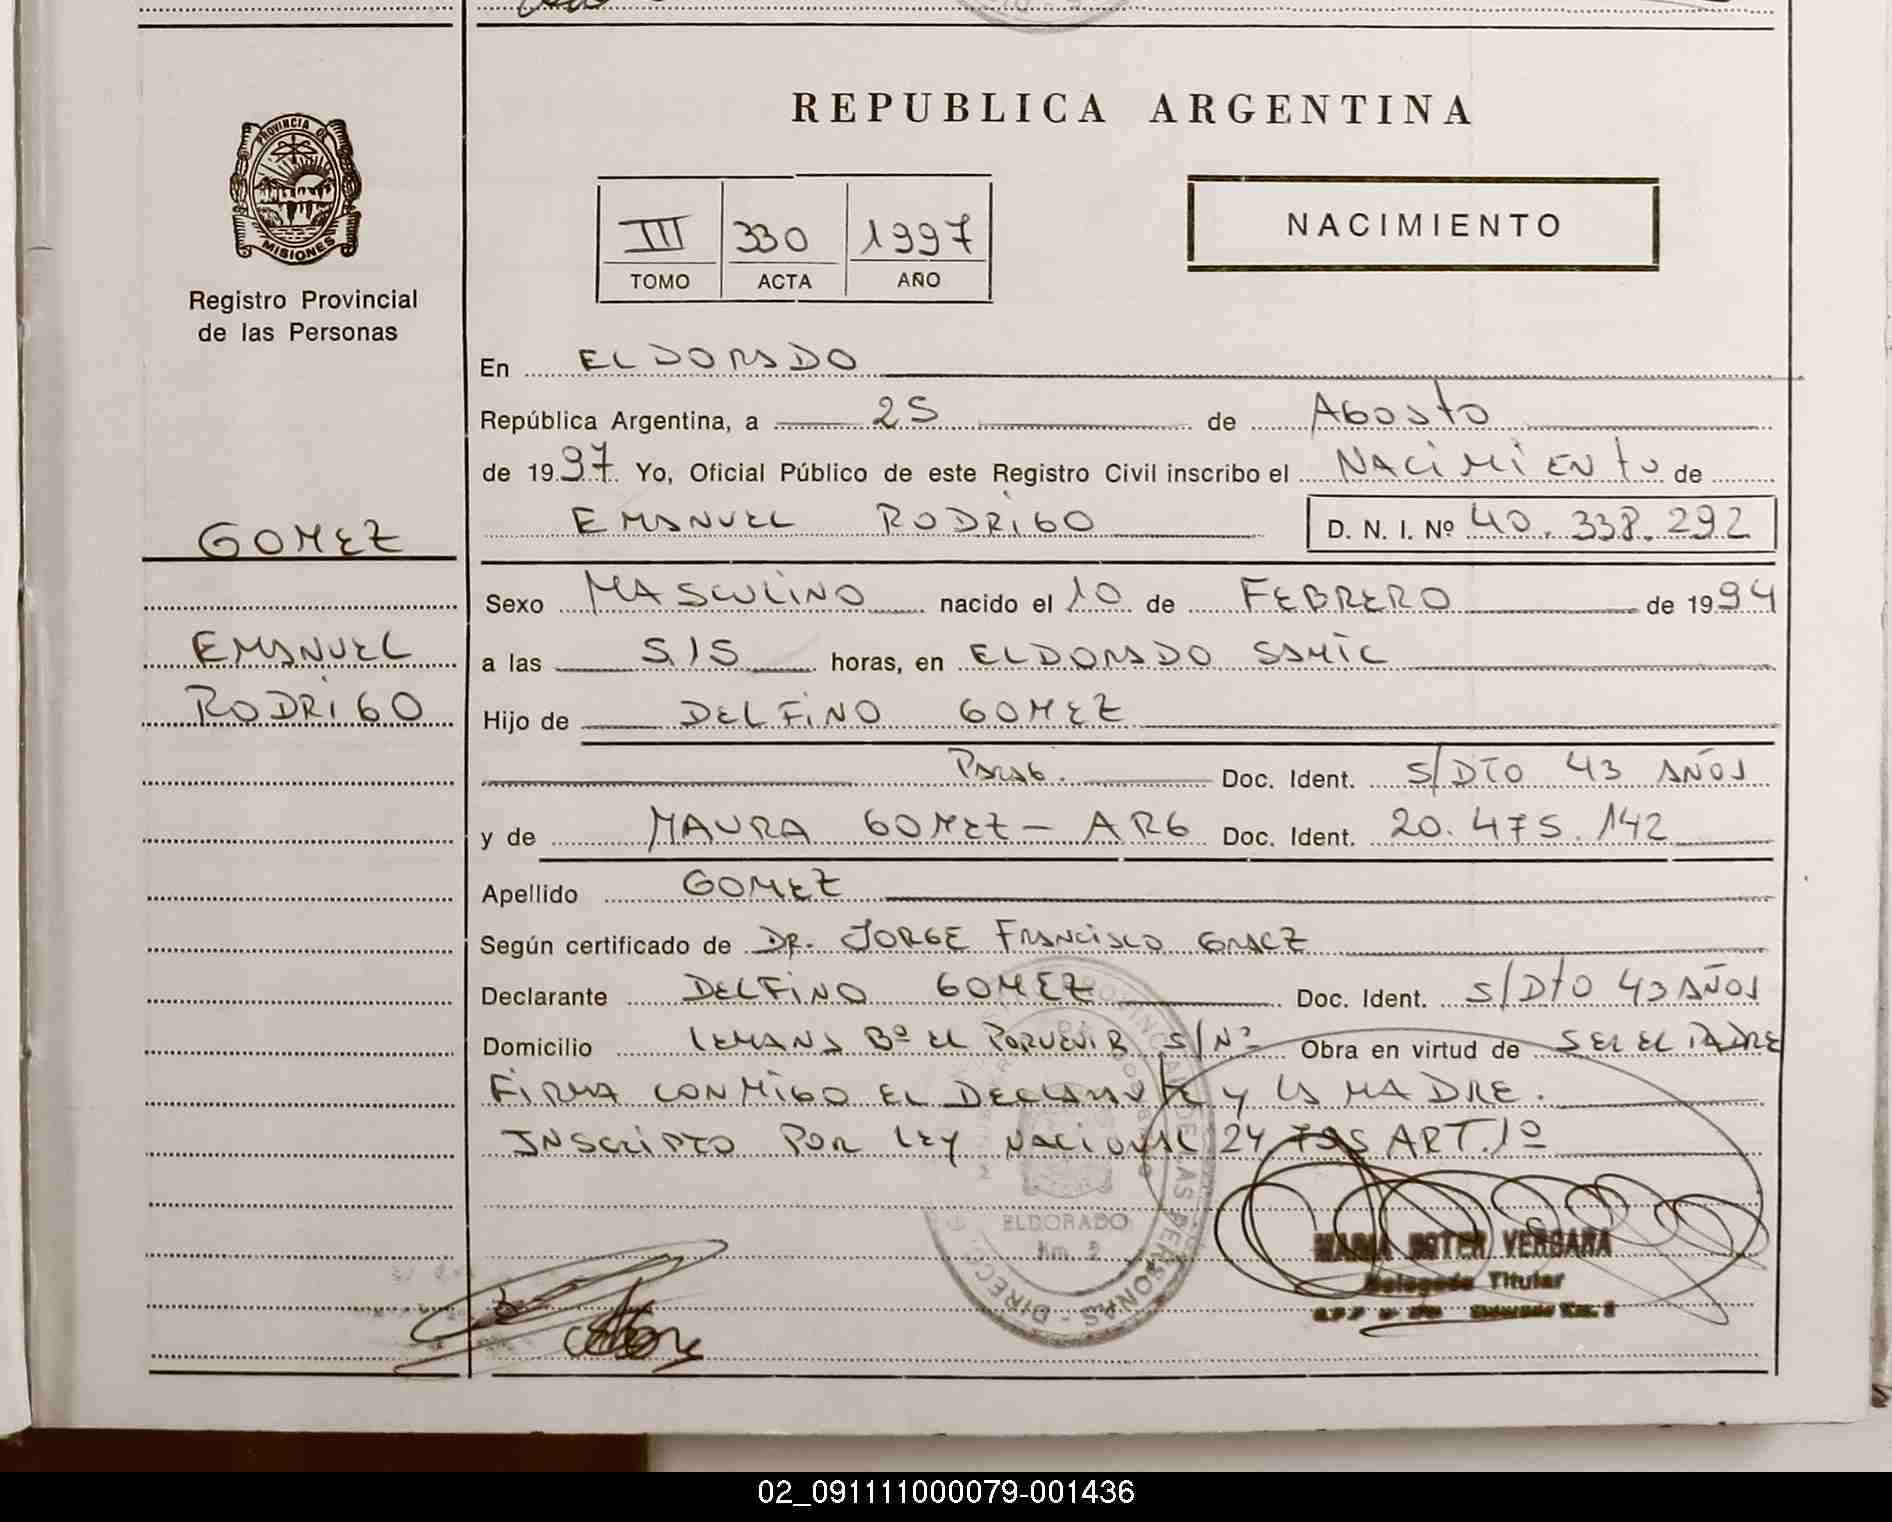 REPUBLICA ARGENTINA
PROVINCIA DE
MISIONES
Registro Provincial
de las Personas
III 330 1997
TOMO ACTA AÑO
NACIMIENTO
En ELDORADO
República Argentina, a 25 de AGOSTO
de 1997 Yo, Oficial Público de este Registro Civil inscribo el NACIMIENTO de
EMANUEL RODRIGO D. N. I. Nº 40.338.292
GOMEZ
EMANUEL
RODRIGO
Sexo MASCULINO nacido el 10 de FEBRERO de 1994
a las 5.15 horas, en ELDORADO SAMIC
Hijo de DELFINO GOMEZ
PARAG. Doc. Ident. S/DTO 43 AÑOS
y de MAURA GOMEZ - ARG Doc. Ident. 20.475.142
Apellido GOMEZ
Según certificado de DR. JORGE FRANCISCO
Declarante DELFINO GOMEZ Doc. Ident. S/DTO 43 AÑOS
Domicilio Bº EL PORVENIR S/Nº Obra en virtud de SER EL PADRE
FIRMA CONMIGO EL DECLARANTE Y LA MADRE.
INSCRIPTO POR LEY NACIONAL 24.755 ART. 1º
ELDORADO
Km. 2
DIRECC
DE LAS PERSONAS
VERGARA
Delegada Titular
02_091111000079-001436